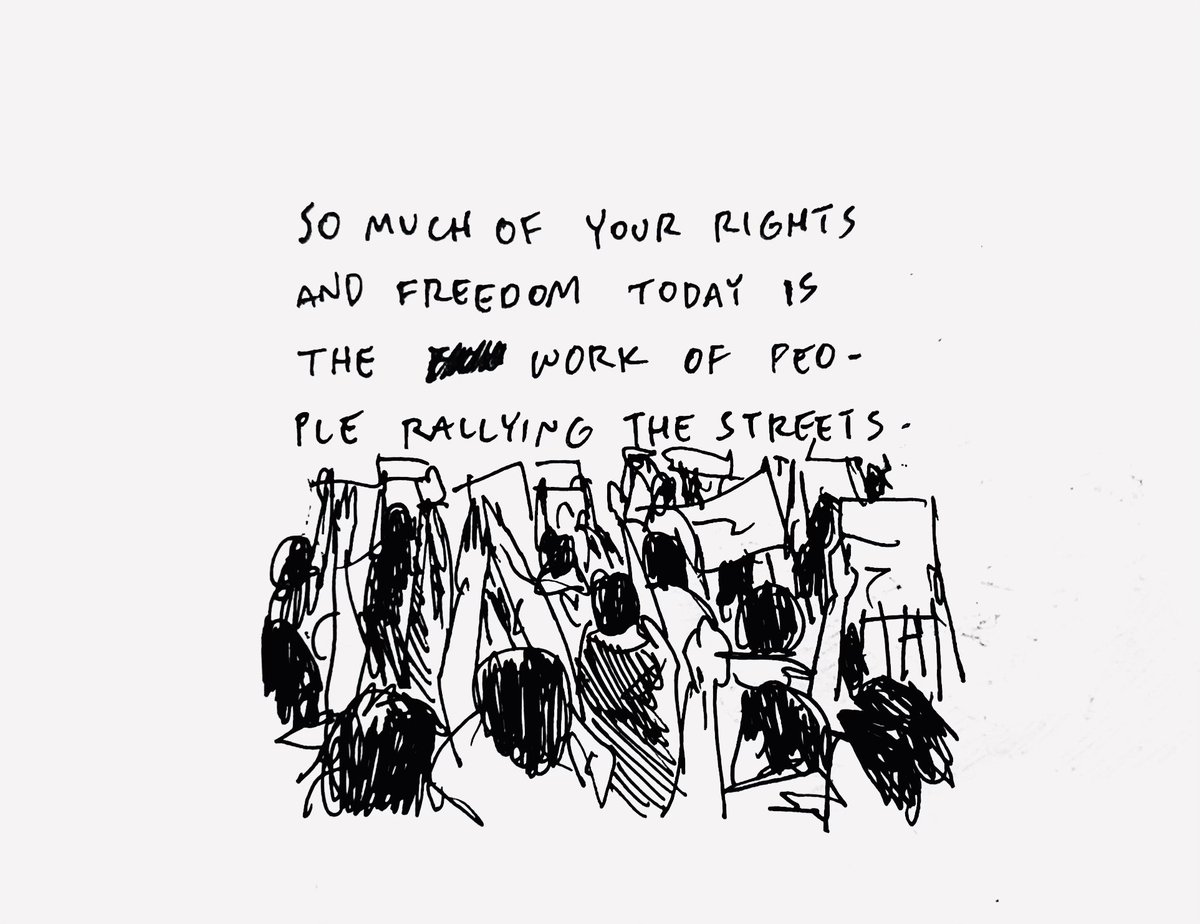 SO MUCH OF YOUR RIGHTS
AND FREEDOM TODAY IS
THE WORK OF PEO-
PLE RALLYING THE STREETS.